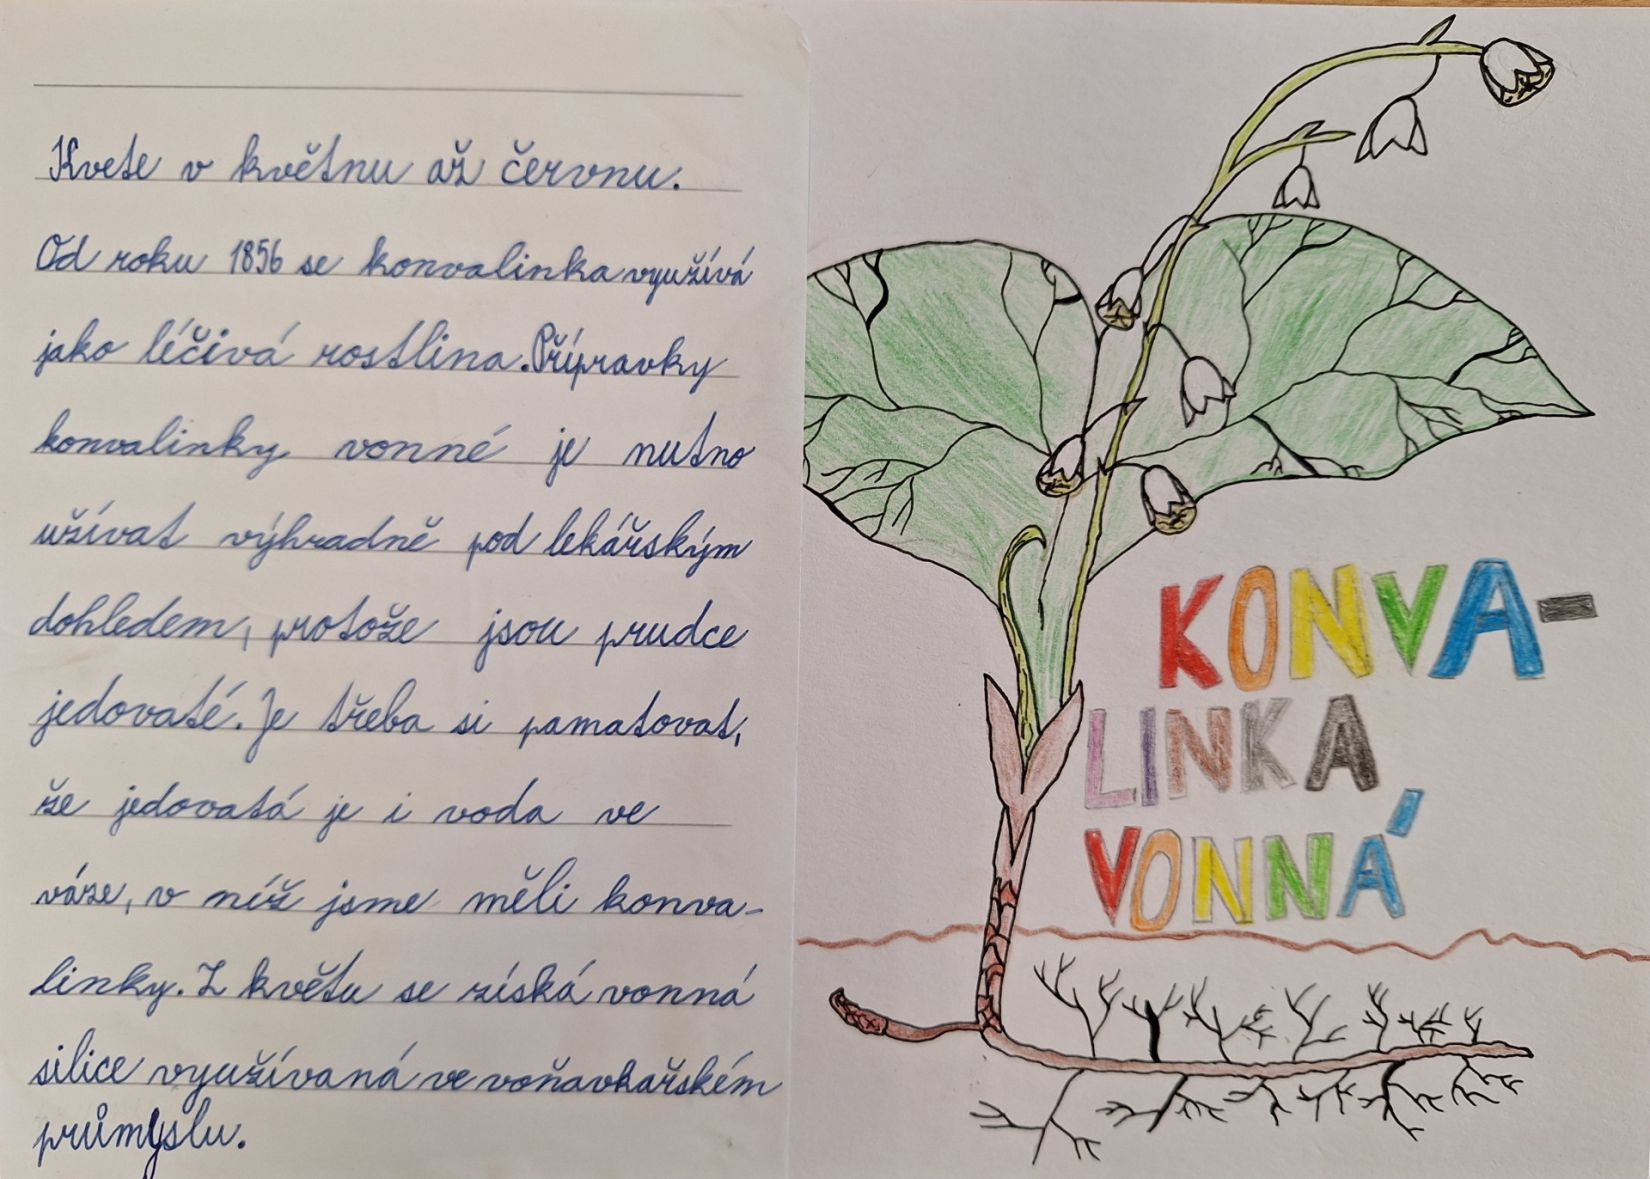 Kvete v květnu až červnu.
Od roku 1856 se konvalinka využívá
jako léčivá rostlina. Přípravky
konvalinky vonné je nutno
užívat výhradně pod lekářským
dohledem, protože jsou prudce
jedovaté. Je třeba si pamatovat,
že jedovatá je i voda ve
váze, v níž jsme měli konva-
linky. Z květu se získá vonná
silice využívaná ve voňavkařském
průmyslu.
KONVA-
LINKA
VONNÁ